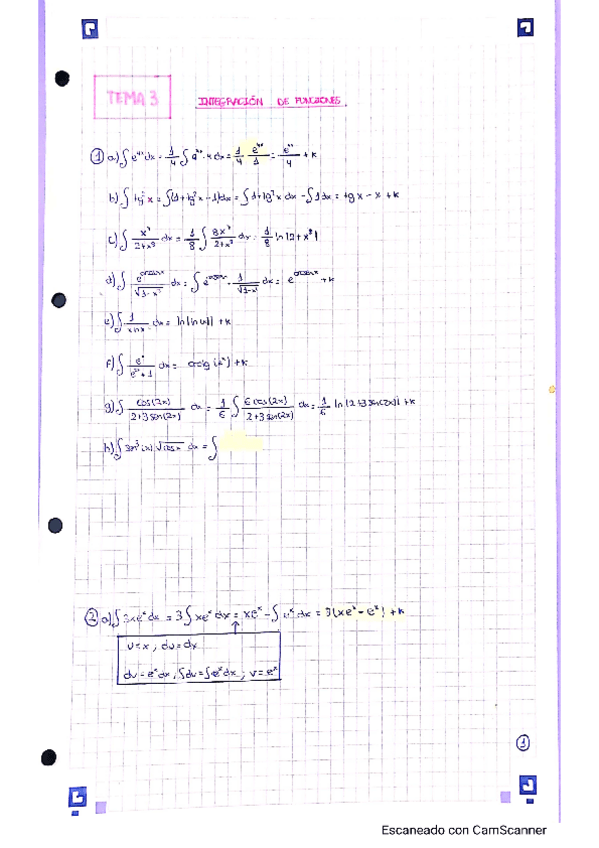 TEMA 3
INTEGRACIÓN DE FUNCIONES.
① a) ∫ e^{4x} dx = 1/4 ∫ e^{4x} · 4 dx = 1/4 e^{4x}/1 = e^{4x}/4 + K
b) ∫ tg² x = ∫ (1 + tg² x - 1) dx = ∫ 1 + tg² x dx - ∫ 1 dx = tg x - x + K
c) ∫ x⁷/(2+x⁸) dx = 1/8 ∫ 8x⁷/(2+x⁸) dx = 1/8 ln |2 + x⁸|
d) ∫ e^{arcsenx}/√(1-x²) dx = ∫ e^{arcsenx} · 1/√(1-x²) dx = e^{arcsenx} + K
e) ∫ 1/(x lnx) dx = ln |ln |x|| + K
f) ∫ e^x/(e^{2x}+1) dx = arctg (e^x) + K
g) ∫ cos(2x)/(2+3 sen(2x)) dx = 1/6 ∫ 6 cos(2x)/(2+3 sen(2x)) dx = 1/6 ln |2+3 sen(2x)| + K
h) ∫ sen³ (x) √cosx dx = ∫
② a) ∫ 3xe^x dx = 3 ∫ xe^x dx = xe^x - ∫ e^x dx = 3(xe^x - e^x) + K
u = x , du = dx
dv = e^x dx , ∫ dv = ∫ e^x dx , v = e^x
1
Escaneado con CamScanner